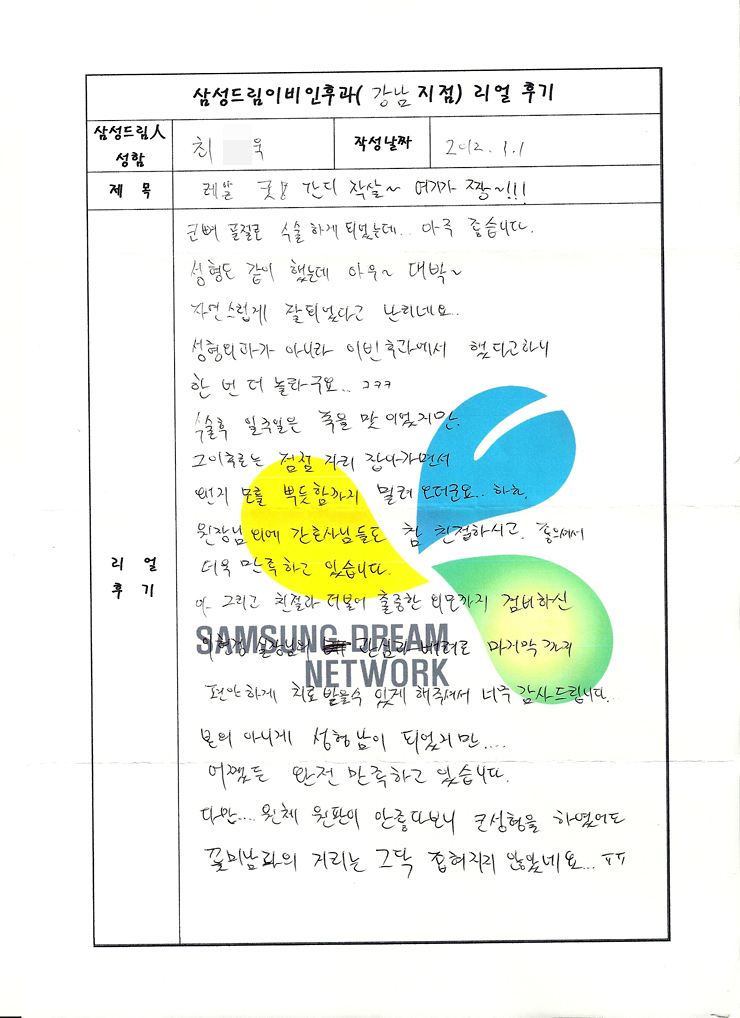 삼성드림이비인후과( 강남 지점) 리얼 후기
삼성드림人 성함
최 욱
작성날짜
2012. 1. 1
제 목
레알 굿 간디 작살~ 여기가 짱~!!!
리 얼 후 기
코뼈 골절로 수술 하게 되었는데.. 아주 좋습니다.
성형도 같이 했는데 아우~ 대박~
자연스럽게 잘되었다고 난리네요..
성형외과가 아니라 이빈후과에서 했다고하니
한 번 더 놀라구요.. ㅋㅋㅋ
수술후 일주일은 죽을 맛 이었지만.
그이후로는 점점 자리 잡아가면서
왠지 모를 뿌듯함까지 밀려 오더군요.. 하하.
원장님 외에 간호사님들도 참 친절하시고. 좋으셔서
더욱 만족하고 있습니다.
아- 그리고 친절과 더불어 출중한 외모까지 겸비하신
실장님의 관심과 배려로 마지막 까지
편안하게 치료 받을수 있게 해주셔서 너무 감사드립니다...
본의 아니게 성형남이 되었지만....
어쨌든 완전 만족하고 있습니다.
다만.... 원체 원판이 안좋다보니 코성형을 하였어도
꽃미남과의 거리는 그닥 좁혀지지 않았네요... ㅠㅠ
SAMSUNG DREAM
NETWORK